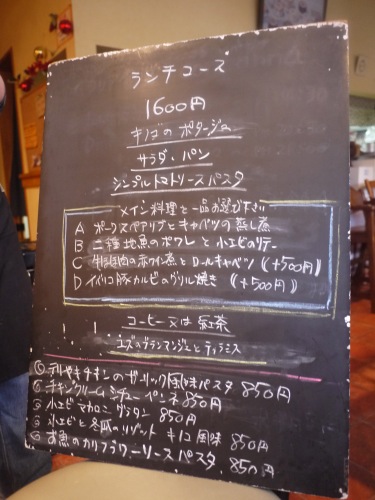 ランチコーズ
1600円
キノコのポタージュ
サラダ・パン
シンプルトマトソースパスタ
メイン料理を一品お選び下さい
A ポークスペアリブとキャベツの蒸し煮
B 二種地魚のポワレと小エビのソテー
C 牛頬肉の赤ワイン煮とロールキャベツ (+500円)
D イベリコ豚カルビのグリル焼き (+500円)
コーヒー又は紅茶
ユズのブランマンジェとティラミス
テリヤキチキンのガーリック風味パスタ 850円
チキンクリームシチューペンネ 850円
小エビマカロニグラタン 850円
小エビと冬瓜のリゾット キノコ風味 850円
お魚のカリフラワーソースパスタ 850円